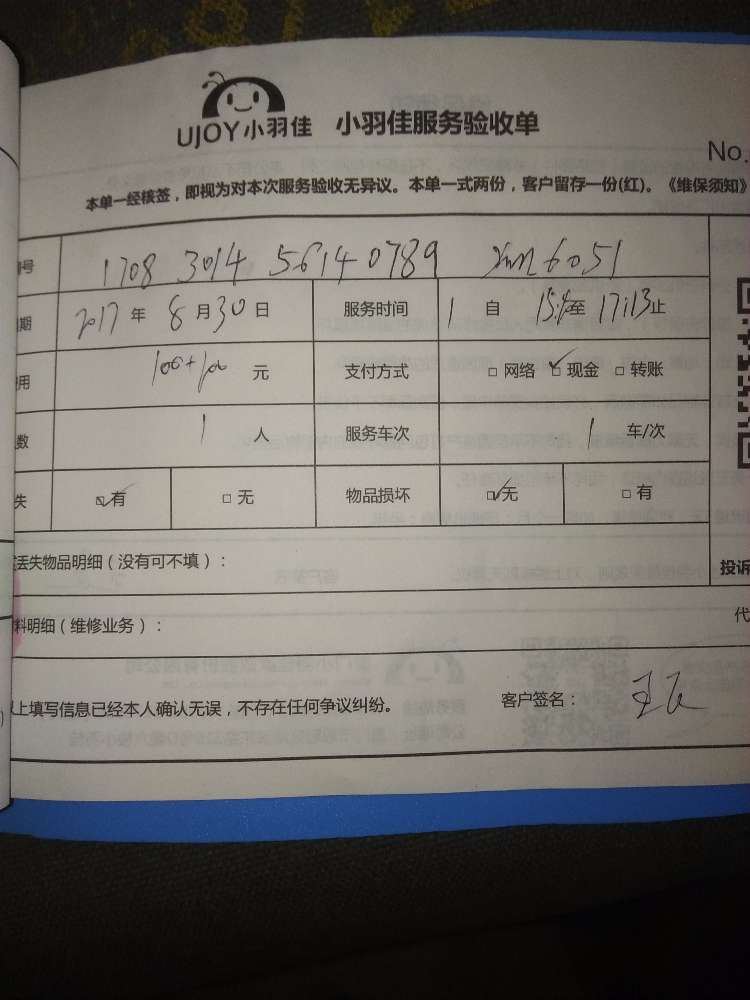 UJOY小羽佳 小羽佳服务验收单
No.
本单一经核签，即视为对本次服务验收无异议。本单一式两份，客户留存一份(红)。《维保须知》
号 1708 3014 5614 0789 6051
期 2017 年 8 月 30 日 服务时间 1 自 至 17:13 止
用 100+100 元 支付方式 □ 网络 ☑ 现金 □ 转账
数 1 人 服务车次 1 车/次
失 ☑ 有 □ 无 物品损坏 ☑ 无 □ 有
丢失物品明细（没有可不填）：
投诉
料明细（维修业务）：
代
上填写信息已经本人确认无误，不存在任何争议纠纷。 客户签名：